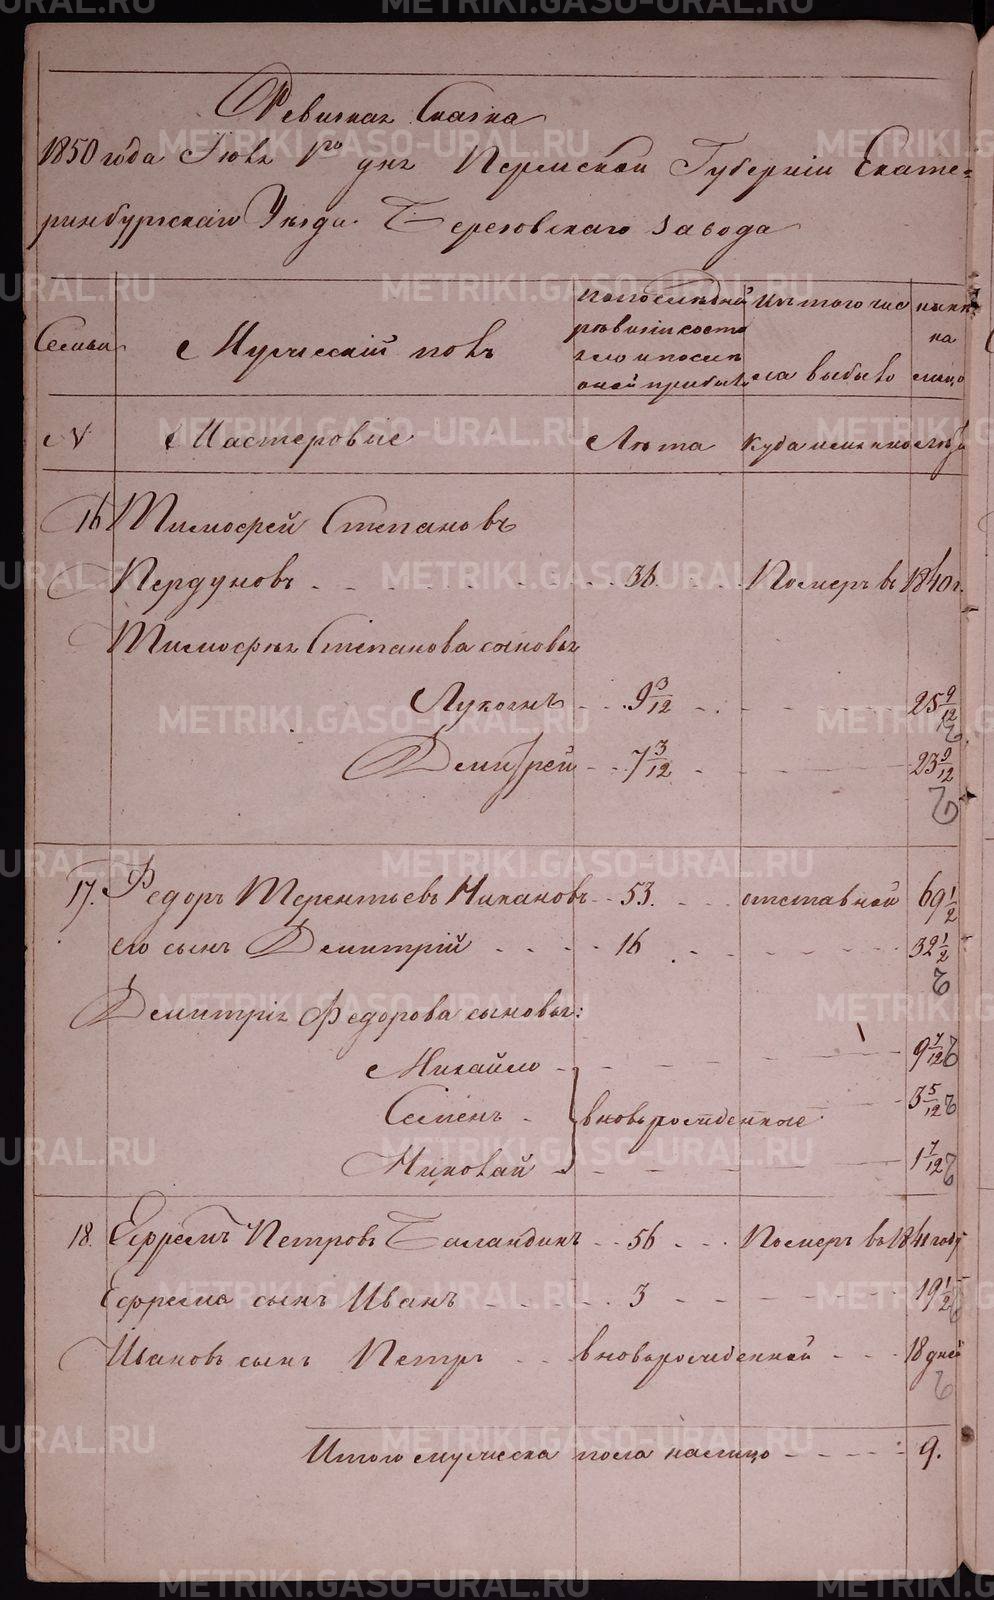 Ревизкая Сказка
1850 года Июля 1го дня Пермской Губернiи Екате-
ринбургскаго Уезда Березовскаго Завода
Семьи
Мужескiй полъ
по последней
ревизiи состо
яло и после
оной прибыло
Изъ того чис
ла выбыло
ныне
на
лицо
N
Мастеровые
Лета
Куда именно
лета
16 Тимофей Степановъ
Пердуновъ - - - 36 - - - Померъ въ 1840 г.
Тимофея Степанова сыновья
Лукоянъ - - 9 3/12 - - - 25 9/12
Демитрей - - 7 3/12 - - - 23 9/12
17. Федоръ Терентьевъ - - 53. - - отставной 69 1/2
его сынъ Демитрiй - - - 16 - - - 32 1/2
Демитрiя Федорова сыновья:
Михайло - - - 9 7/12
Семенъ - вновьрожденные - 3 5/12
Николай - - - 1 7/12
18. Ефремъ Петровъ Баландинъ - - 56 - - Померъ въ 1841 году
Ефрема сынъ Иванъ - - - 3 - - - 19 1/2
Ивановъ сынъ Петръ - - вновьрожденной - - - 18 дней
Итого мужеска пола налицо - - - 9.
METRIKI.GASO-URAL.RU